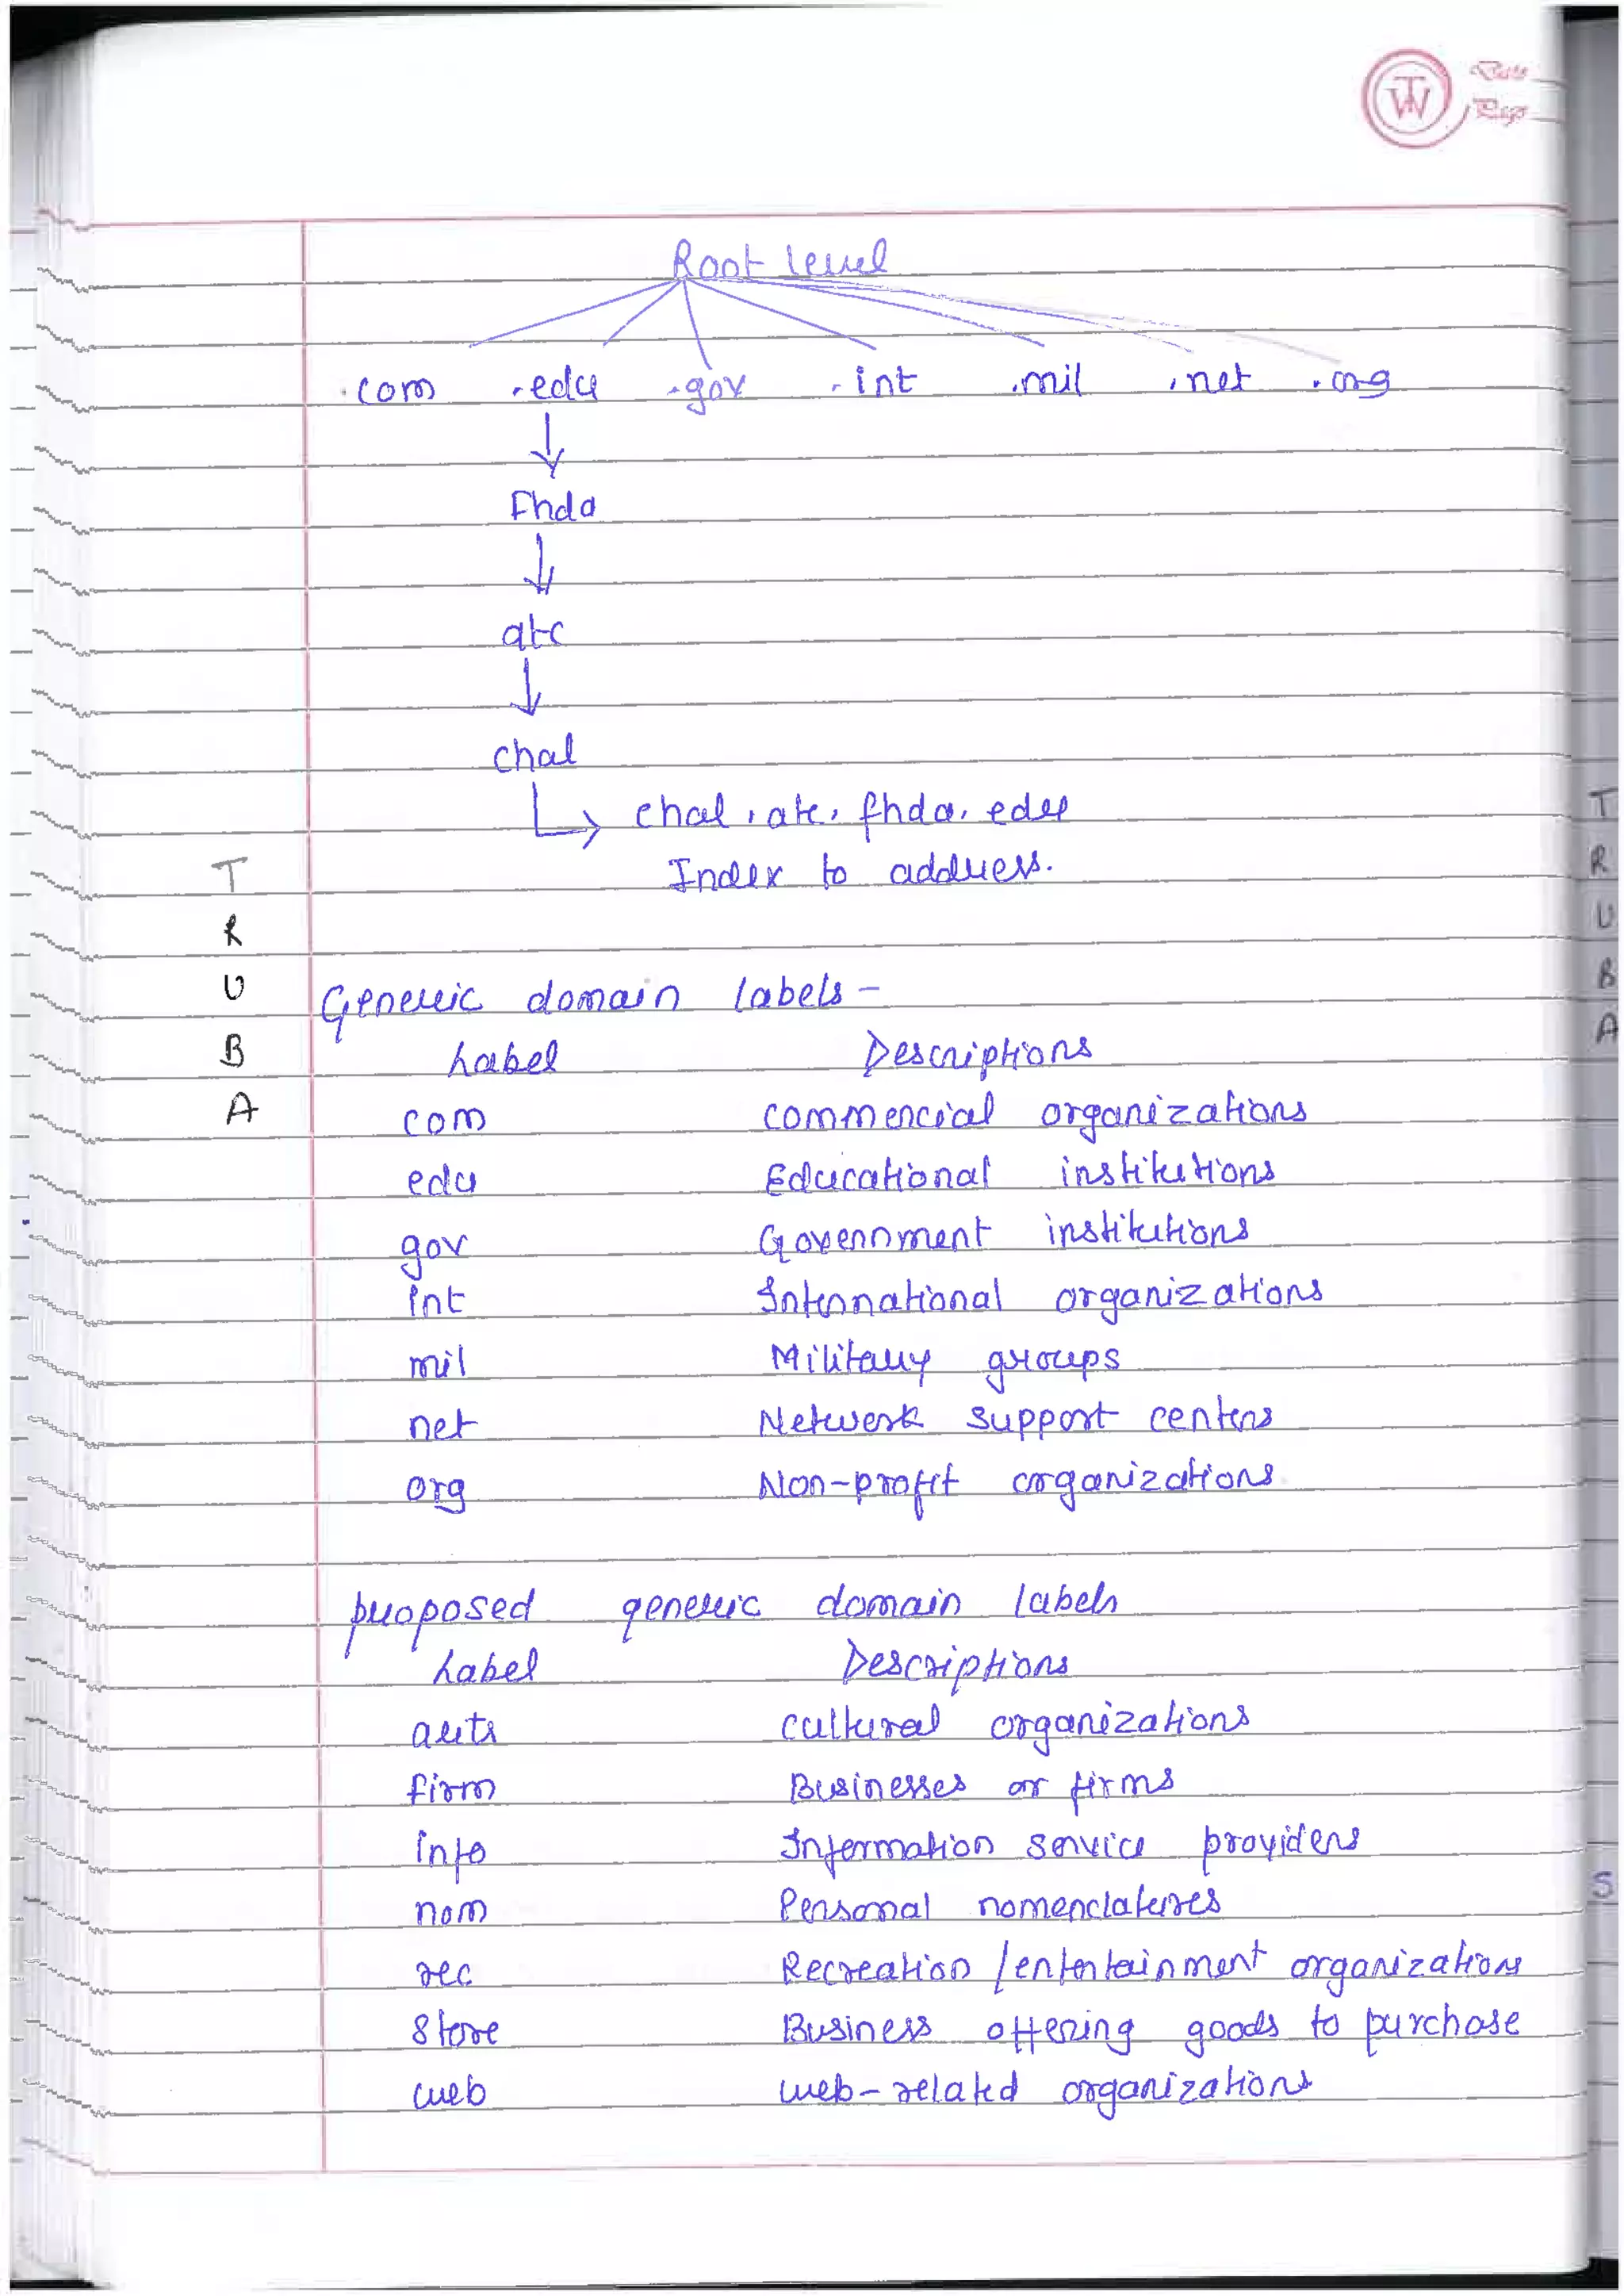 TW Date
Page
Root level
.com .edu .gov .int .mil .net .org
Fhda
atc
chal
chal.atc.fhda.edu
Index to address.
T
R
U
B
A
Generic domain labels -
Label Descriptions
com commercial organizations
edu Educational institutions
gov Government institutions
int International organizations
mil Military groups
net Network support centers
org Non-profit organizations
proposed generic domain labels
Label Descriptions
arts cultural organizations
firm Businesses or firms
info Information service providers
nom Personal nomenclatures
rec Recreation / entertainment organizations
store Business offering goods to purchase
web web-related organizations
T
R
U
B
A
S